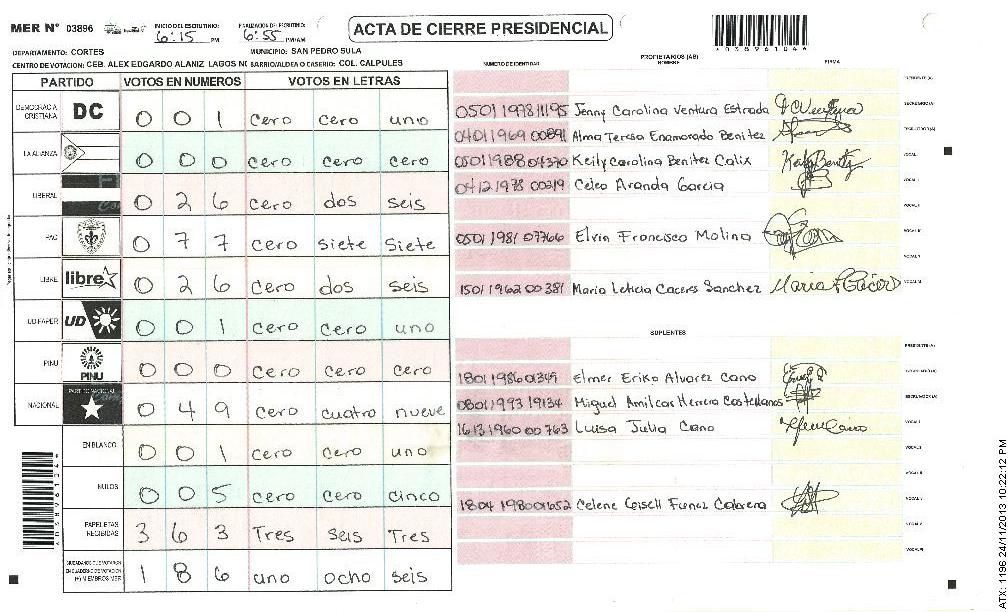 MER Nº 03896
INICIO DEL ESCRUTINIO: 6:15 PM
FINALIZACION DEL ESCRUTINIO: 6:55 PM/AM
ACTA DE CIERRE PRESIDENCIAL
DEPARTAMENTO: CORTES
MUNICIPIO: SAN PEDRO SULA
CENTRO DE VOTACION: CEB. ALEX EDGARDO ALANIZ LAGOS NO BARRIO/ALDEA O CASERIO: COL. CALPULES
PARTIDO VOTOS EN NUMEROS VOTOS EN LETRAS
DEMOCRACIA CRISTIANA DC 0 0 1 cero cero uno
LA ALIANZA 0 0 0 cero cero cero
LIBERAL 0 2 6 cero dos seis
PAC 0 7 7 cero siete siete
LIBRE libre 0 2 6 cero dos seis
UD FAPER UD 0 0 1 cero cero uno
PINU PINU 0 0 0 cero cero cero
NACIONAL PARTIDO NACIONAL 0 4 9 cero cuatro nueve
EN BLANCO 0 0 1 cero cero uno
NULOS 0 0 5 cero cero cinco
PAPELETAS RECIBIDAS 3 6 3 Tres seis Tres
CIUDADANOS QUE VOTARON EN CUADERNO DE VOTACION (+) MIEMBROS MER 1 8 6 uno ocho seis
PROPIETARIOS (AS)
NUMERO DE IDENTIDAD NOMBRE FIRMA
PRESIDENTE (A)
0501197811195 Jenny Carolina Ventura Estrada SECRETARIO (A)
0401196900891 Alma Teresa Enamorado Benitez ESCRUTADOR (A)
0501198804370 Keily Carolina Benitez Calix Keily Benitez VOCAL I
0412197800219 Celeo Aranda Garcia VOCAL II
0501198107766 Elvin Francisco Molina
1501196200381 Maria Leticia Caceres Sanchez
SUPLENTES
PRESIDENTE (A)
1801198601349 Elmer Eriko Alvarez Cano SECRETARIO (A)
0801199319134 Miguel Amilcar Herrera Castellanos ESCRUTADOR (A)
1613196000763 Luisa Julia Cano VOCAL I
1804198001652 Celene Gisell Funez Cabrera
ATX: 1196 24/11/2013 10:22:12 PM